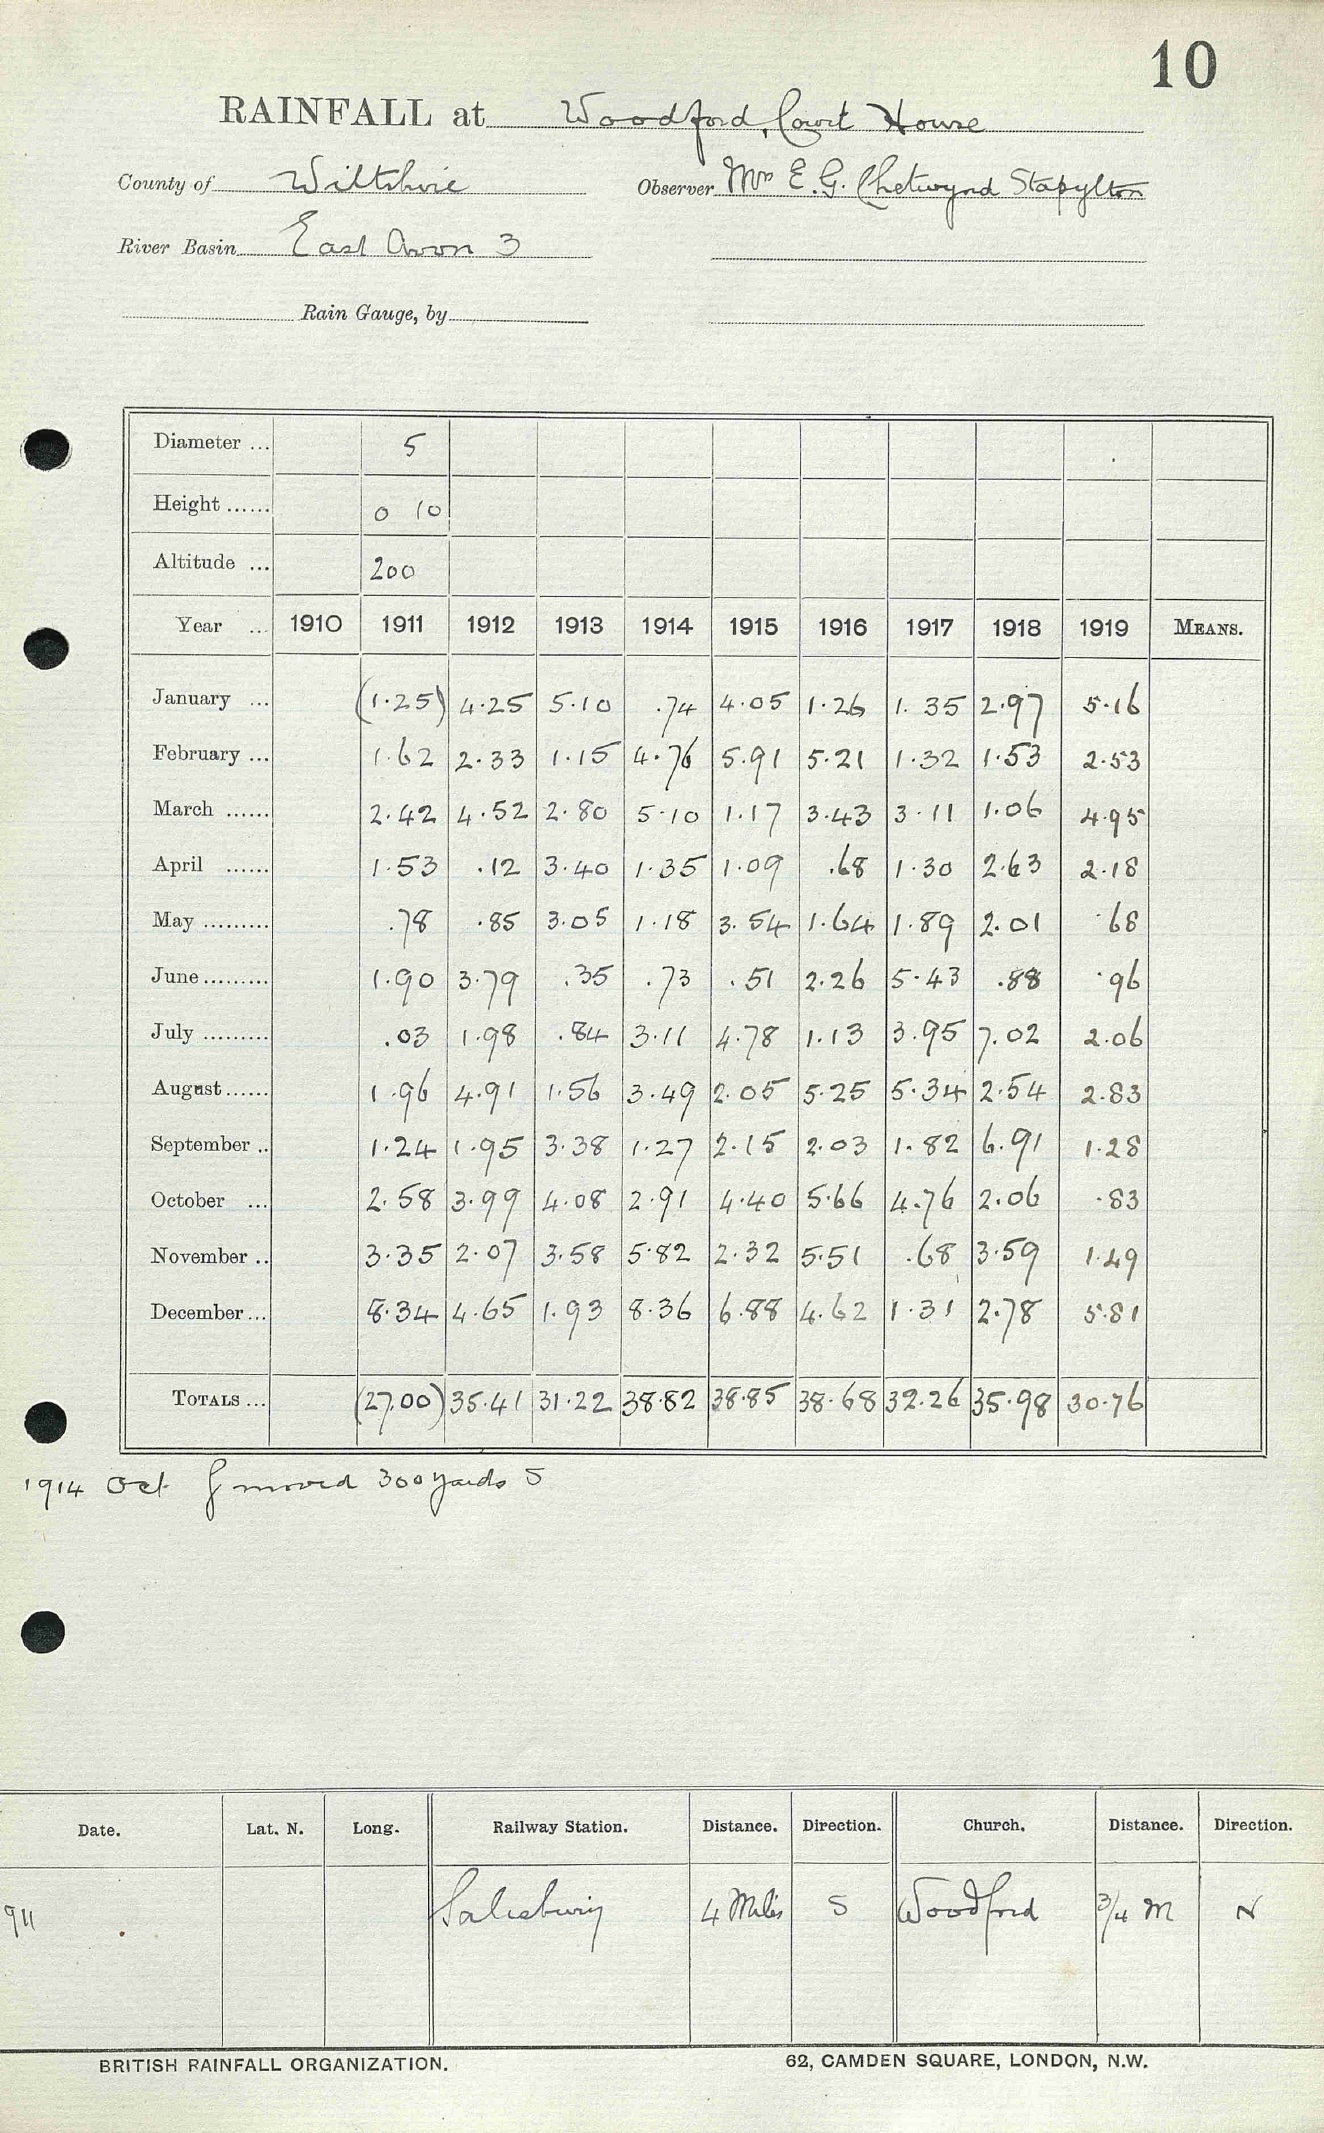 10
RAINFALL at Woodford, Court House
County of Wiltshire Observer Mrs E. G. Chetwynd Stapylton
River Basin East Avon 3
Rain Gauge, by
Diameter ... 5
Height ...... 0 10
Altitude ... 200
Year ... 1910 1911 1912 1913 1914 1915 1916 1917 1918 1919 MEANS.
January ... (1.25) 4.25 5.10 .74 4.05 1.26 1.35 2.97 5.16
February ... 1.62 2.33 1.15 4.76 5.91 5.21 1.32 1.53 2.53
March ...... 2.42 4.52 2.80 5.10 1.17 3.43 3.11 1.06 4.95
April ...... 1.53 .12 3.40 1.35 1.09 .68 1.30 2.63 2.18
May ......... .78 .85 3.05 1.18 3.54 1.64 1.89 2.01 .68
June ......... 1.90 3.79 .35 .73 .51 2.26 5.43 .88 .96
July ......... .03 1.98 .84 3.11 4.78 1.13 3.95 7.02 2.06
August ...... 1.96 4.91 1.56 3.49 2.05 5.25 5.34 2.54 2.83
September .. 1.24 1.95 3.38 1.27 2.15 2.03 1.82 6.91 1.28
October ... 2.58 3.99 4.08 2.91 4.40 5.66 4.76 2.06 .83
November .. 3.35 2.07 3.58 5.82 2.32 5.51 .68 3.59 1.49
December ... 8.34 4.65 1.93 8.36 6.88 4.62 1.31 2.78 5.81
TOTALS ... (27.00) 35.41 31.22 38.82 38.85 38.68 32.26 35.98 30.76
1914 Oct G moved 300 yards S
Date. Lat. N. Long. Railway Station. Distance. Direction. Church. Distance. Direction.
911 Salisbury 4 Miles S Woodford 3/4 M N
BRITISH RAINFALL ORGANIZATION. 62, CAMDEN SQUARE, LONDON, N.W.